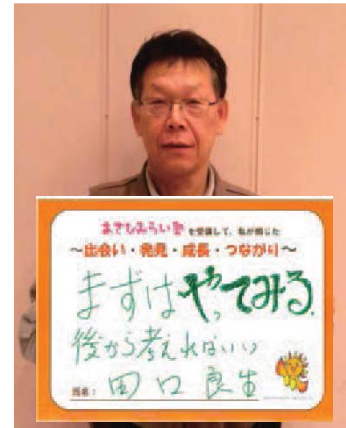 あさひみらい塾を受講して、私が感じた
～出会い・発見・成長・つながり～
まずはやってみる。
後から考えればいい
氏名：田口良生